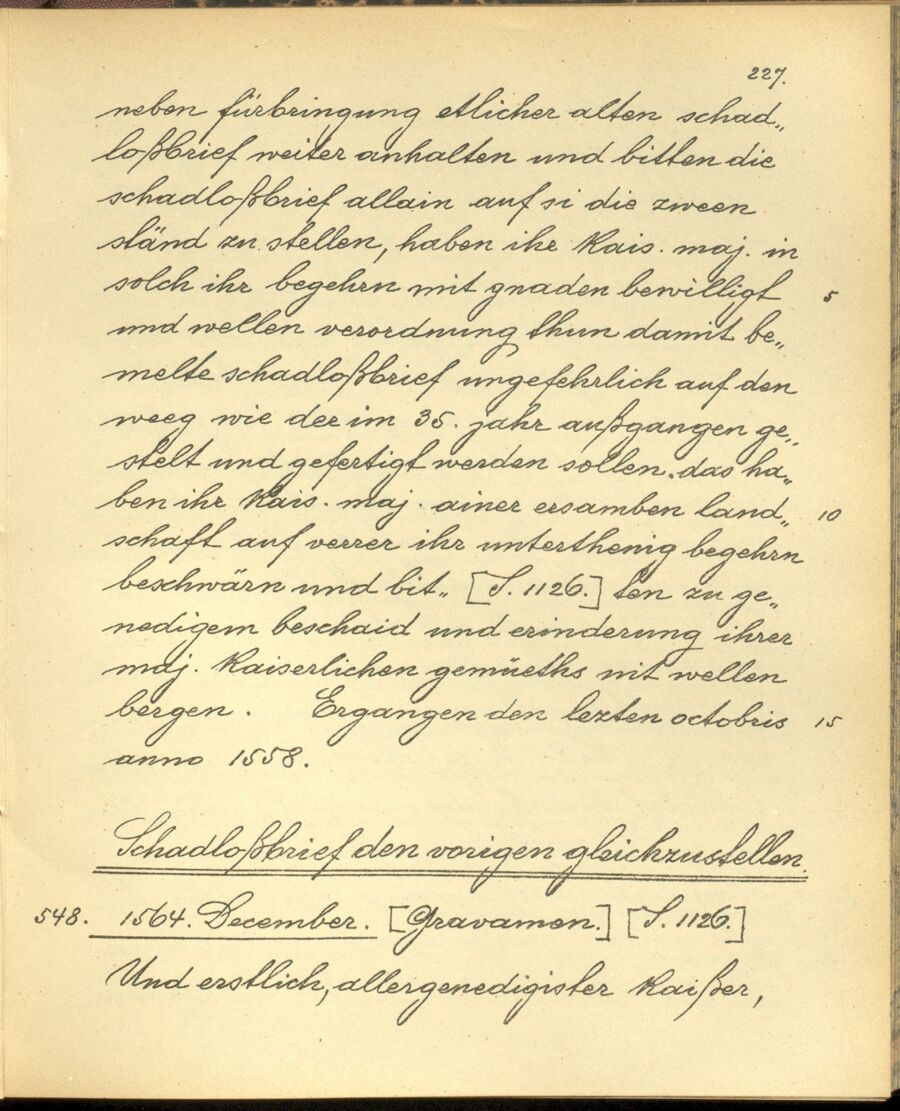 227.
neben fürbringung etlicher alten schad„
loßbrief weiter anhalten und bitten die
schadloßbrief allain auf si die zween
ständ zu stellen, haben ihr Kais. maj. in
solch ihr begehrn mit gnaden bewilligt 5
und wellen verordnung thun damit be„
melte schadloßbrief ungefehrlich auf den
weeg wie der im 35. jahr außgangen ge„
stelt und gefertigt werden sollen. das ha„
ben ihr Kais. maj. ainer ersamben land„ 10
schaft auf verrer ihr unterthenig begehrn
beschwärn und bit„ [S. 1126.] ten zu ge„
nedigem beschaid und erinderung ihrer
maj. Kaiserlichen gemüeths nit wellen
bergen. Ergangen den lezten octobris 15
anno 1558.
Schadloßbrief den vorigen gleichzustellen.
548. 1564. December. [Gravamen.] [S. 1126.]
Und erstlich, allergenedigister Kaißer,